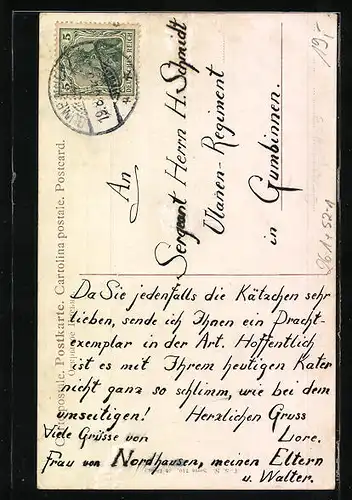 19,-
5
DEUTSCHES REICH
Carte postale. Postkarte. Cartolina postale. Postcard.
An
Sergeant Herrn H. Schmidt
Ulanen-Regiment
in Gumbinnen.
Da Sie jedenfalls die Kätzchen sehr
lieben, sende ich Ihnen ein Pracht-
exemplar in der Art. Hoffentlich
ist es mit Ihrem heutigen Kater
nicht ganz so schlimm, wie bei dem
umseitigen! Herzlichen Gruss
Viele Grüsse von Lore.
Frau von Nordhausen, meinen Eltern
u. Walter.